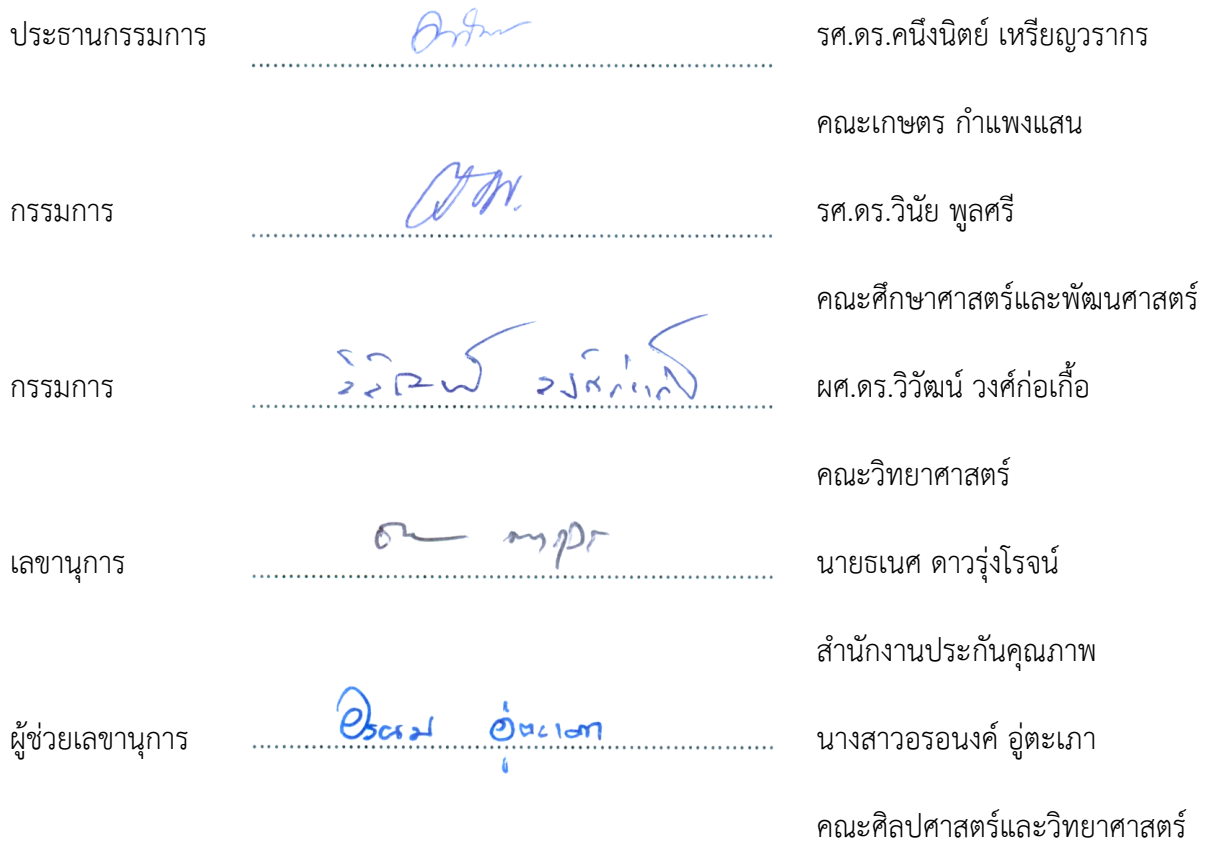 ประธานกรรมการ รศ.ดร.คนึงนิตย์ เหรียญวรากร
คณะเกษตร กำแพงแสน
กรรมการ รศ.ดร.วินัย พูลศรี
คณะศึกษาศาสตร์และพัฒนศาสตร์
กรรมการ วิวัฒน์ วงศ์ก่อเกื้อ ผศ.ดร.วิวัฒน์ วงศ์ก่อเกื้อ
คณะวิทยาศาสตร์
เลขานุการ นายธเนศ ดาวรุ่งโรจน์
สำนักงานประกันคุณภาพ
ผู้ช่วยเลขานุการ อู่ตะเภา นางสาวอรอนงค์ อู่ตะเภา
คณะศิลปศาสตร์และวิทยาศาสตร์